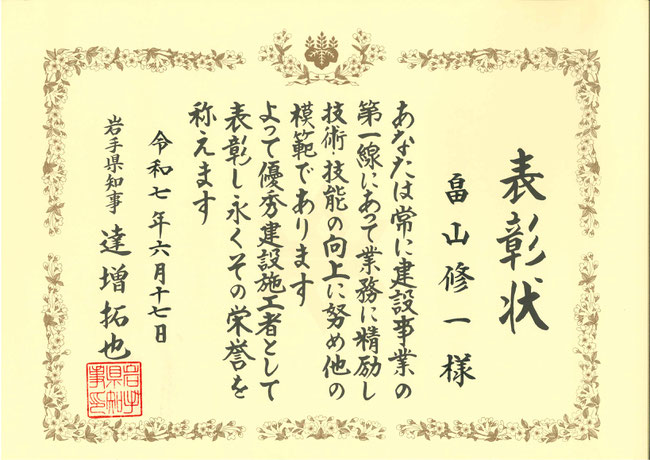 表彰状
畠山修一様
あなたは常に建設事業の
第一線にあって業務に精励し
技術技能の向上に努め他の
模範であります
よって優秀建設施工者として
表彰し永くその栄誉を
称えます
令和七年六月十七日
岩手県知事 達増拓也
岩手県知事印